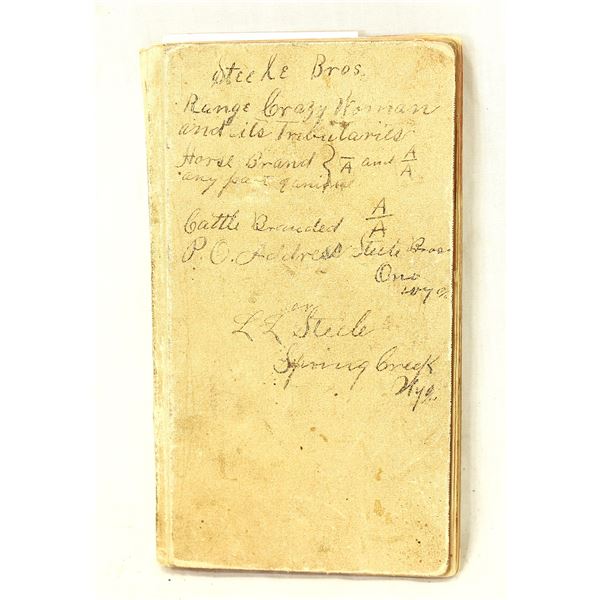 Steele Bros.
Range Crazy Woman
and its Tributaries
Horse Brand } A and A/A
any part animal
Cattle Branded A/A
P. O. Address Steele Bros.
Ono
Wyo
or
L L Steele
Spring Creek
Wyo.